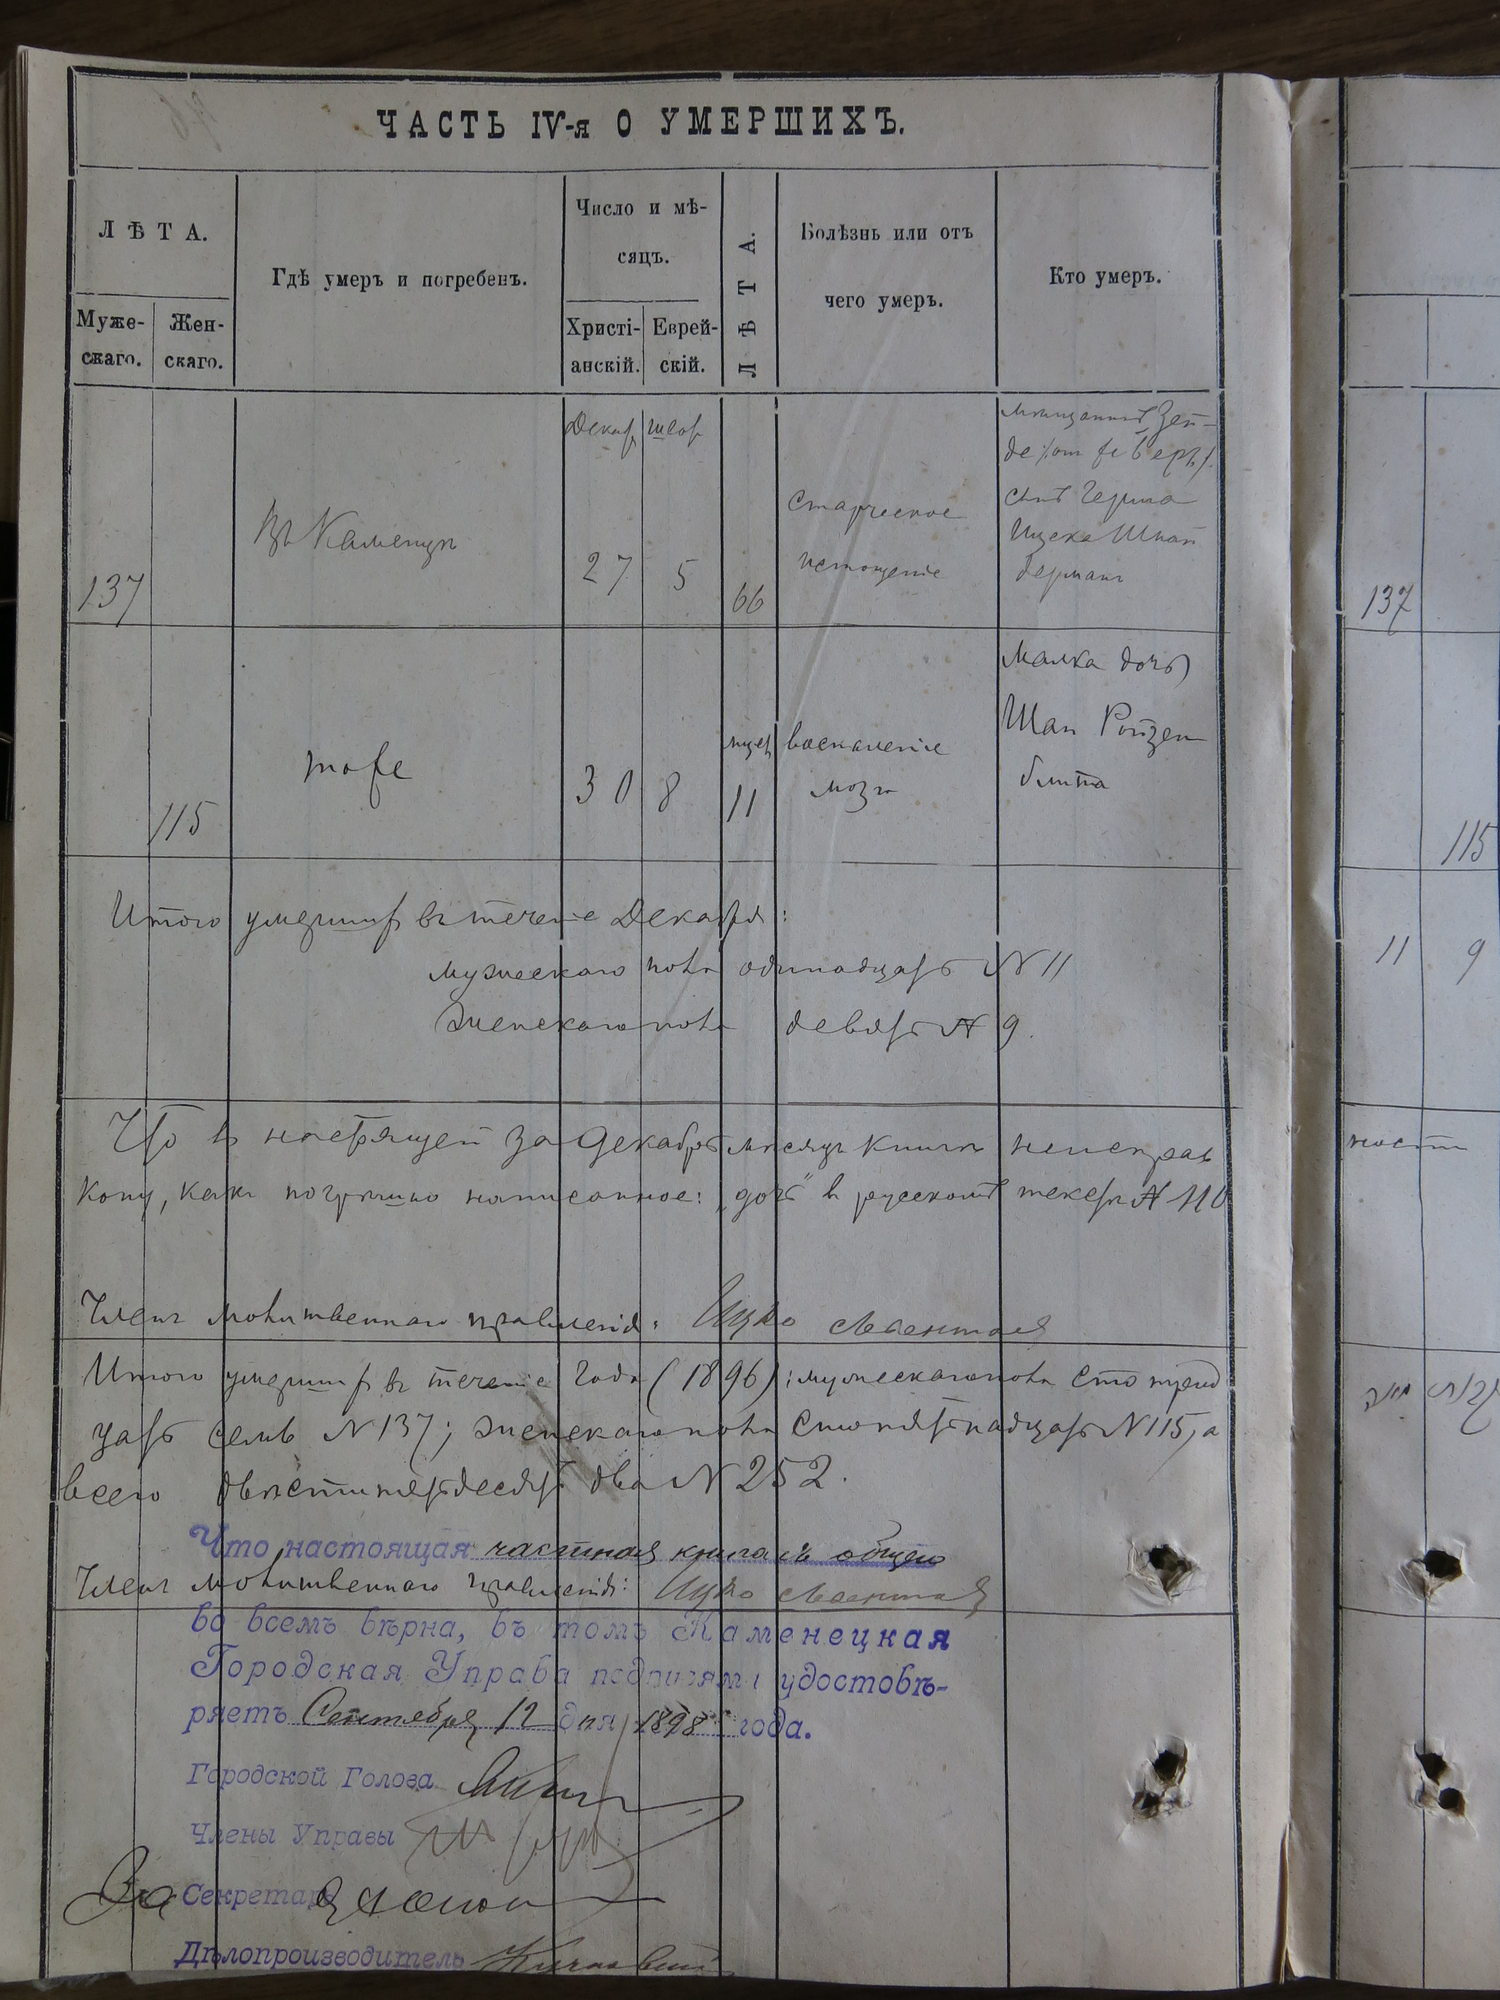 ЧАСТЬ IV-я О УМЕРШИХЪ.
ЛѢТА.
Муже-
скаго.
Жен-
скаго.
Гдѣ умеръ и погребенъ.
Число и мѣ-
сяцъ.
Христі-
анскій.
Еврей-
скій.
ЛѢТА.
Болѣзнь или отъ
чего умеръ.
Кто умеръ.
137
Въ Каменцѣ
Декаб
27
5
66
старческое
истощеніе
сынъ Герша
Ицека Шпай
дермань
137
115
тоже
30
8
11
воспаленіе
мозга
Малка дочь
Шаи Ройзен
блита
115
Итого умерших въ течение Декабря:
мужескаго пола одинадцать N 11
женскаго пола девять N 9.
11 9
Что в настоящей за Декабрь месяцъ книги
написанное: „дочь" в русскомъ тексте N 110
Членъ молитвеннаго правленія: Ицко
Итого умерших въ течение года (1896): мужескаго пола сто трид
цать семь N 137; женскаго пола сто пятнадцать N 115, а
всего двѣсти пятьдесят два N 252.
Что настоящая частная книга съ общею
Членъ молитвеннаго правленія: Ицко
во всемъ вѣрна, въ томъ Каменецкая
Городская Управа подписями удостовѣ-
ряетъ Сентября 12 дня 1898 года.
Городской Голова
Члены Управы
За Секретаря
Дѣлопроизводитель